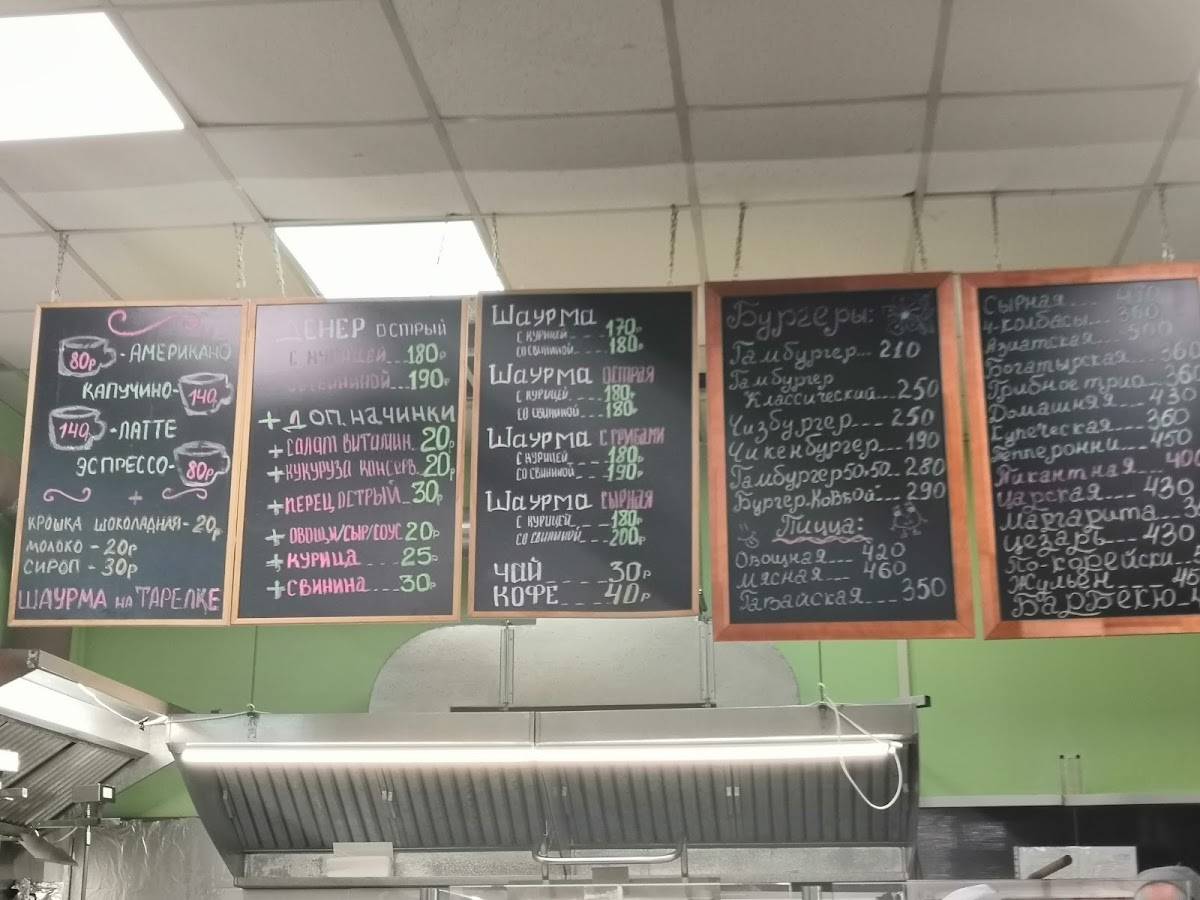 80р - АМЕРИКАНО
КАПУЧИНО - 140р
140р - ЛАТТЕ
ЭСПРЕССО - 80р
+
КРОШКА ШОКОЛАДНАЯ - 20р
МОЛОКО - 20р
СИРОП - 30р
ШАУРМА на ТАРЕЛКЕ
ДЕНЕР ОСТРЫЙ
С КУРИЦЕЙ...180р
СО СВИНИНОЙ...190р
+ ДОП. НАЧИНКИ
+ САЛАТ ВИТАМИН. 20р
+ КУКУРУЗА КОНСЕРВ. 20р
+ ПЕРЕЦ ОСТРЫЙ 30р
+ ОВОЩИ/СЫР/СОУС 20р
+ КУРИЦА 25р
+ СВИНИНА 30р
ШАУРМА
С КУРИЦЕЙ 170р
СО СВИНИНОЙ 180р
ШАУРМА ОСТРАЯ
С КУРИЦЕЙ 180р
СО СВИНИНОЙ 180р
ШАУРМА С ГРИБАМИ
С КУРИЦЕЙ 180р
СО СВИНИНОЙ 190р
ШАУРМА СЫРНАЯ
С КУРИЦЕЙ 180р
СО СВИНИНОЙ 200р
ЧАЙ 30р
КОФЕ 40р
Бургеры:
Гамбургер... 210
Гамбургер
Классический... 250
Чизбургер... 250
Чикенбургер... 190
Гамбургер 50х50.. 280
Бургер. Ковбой... 290
Пицца:
Овощная... 420
Мясная... 460
Гавайская... 350
Сырная...
4-колбасы... 360
Азиатская... 500
Богатырская... 360
Грибное трио... 360
Домашняя... 430
Купеческая... 360
Пепперонни... 450
Пикантная 400
Царская... 430
Маргарита
Цезарь... 430
По-корейски
Жульен
Барбекю